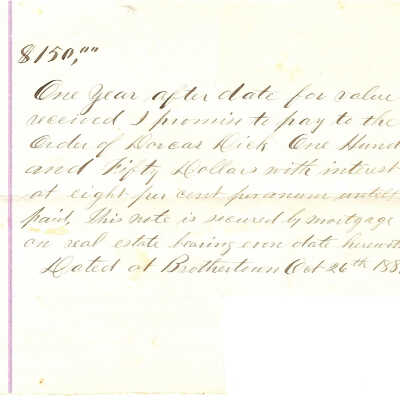 $150,""
One Year after date for value
received I promise to pay to the
Order of Dorcas Dick One Hund
and Fifty Dollars with interest
at eight per cent per anum until
paid, This note is secured by mortgage
on real estate bearing even date herewith
Dated at Brothertown Oct 26th 188